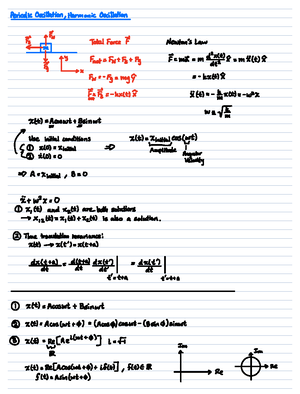 Periodic Oscillation, Harmonic Oscillation
Total Force F⃗
Newton's Law
F⃗ = ma⃗ = m d²x(t)/dt² x̂ = m ẍ(t) x̂
= -kx(t) x̂
ẍ(t) = -k/m x(t) = -ω²x
ω ≡ √(k/m)
x(t) = A cosωt + B sinωt
Use initial conditions
① x(0) = x_initial
② ẋ(0) = 0
⇒ x(t) = x_initial cos(ωt)
Amplitude
Angular
Velocity
⇒ A = x_initial , B = 0
ẍ + ω²x = 0
① x₁(t) and x₂(t) are both solutions
→ x₁₂(t) = x₁(t) + x₂(t) is also a solution.
② Time translation invariance:
x(t) → x(t') = x(t+a)
dx(t+a)/dt = d(t+a)/dt dx(t')/dt' |t'=t+a = dx(t')/dt' |t'=t+a
① x(t) = A cosωt + B sinωt
② x(t) = A cos(ωt + φ) = (A cosφ) cosωt - (B sinφ) sinωt
③ x(t) = Re[A e^{i(ωt+φ)}] i = √-1
ℝ
x(t) = Re[A cos(ωt+φ) + i f(t)] , f(t) ∈ ℝ
f(t) = A sin(ωt+φ)
Im
Re
Im
Re